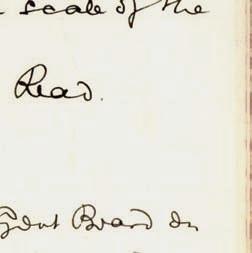 scale of the
Read.
Board on